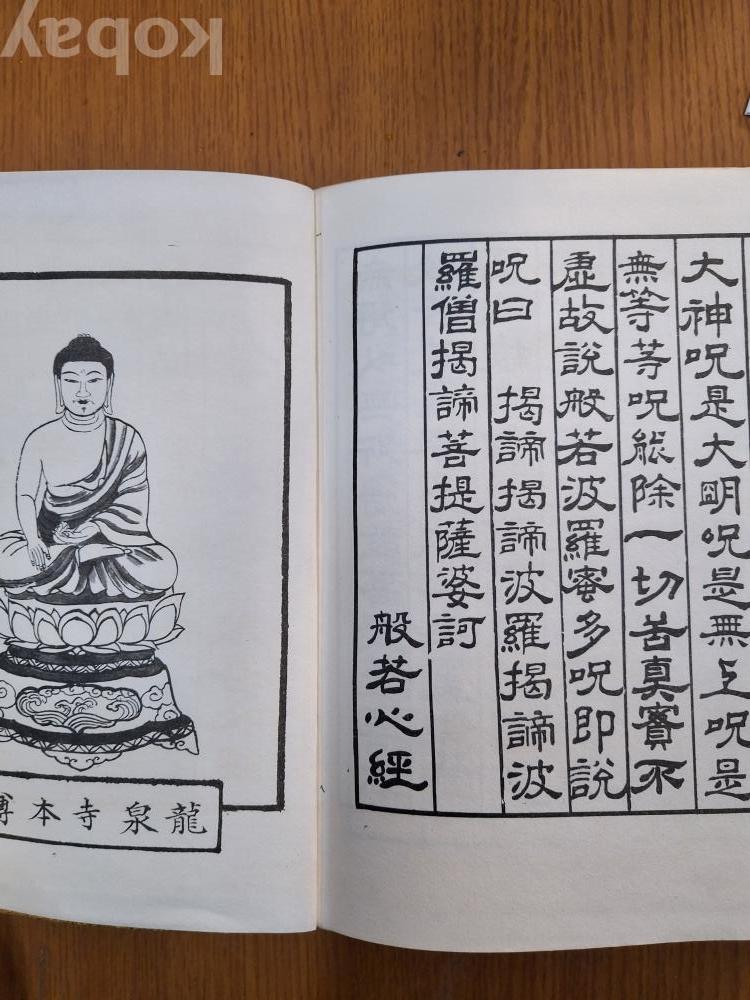 大神呪是大明呪是無上呪是
無等等呪能除一切苦真實不
虛故說般若波羅蜜多呪即說
呪曰 揭諦揭諦波羅揭諦波
羅僧揭諦菩提薩婆訶
般若心經
龍泉寺本
kobay